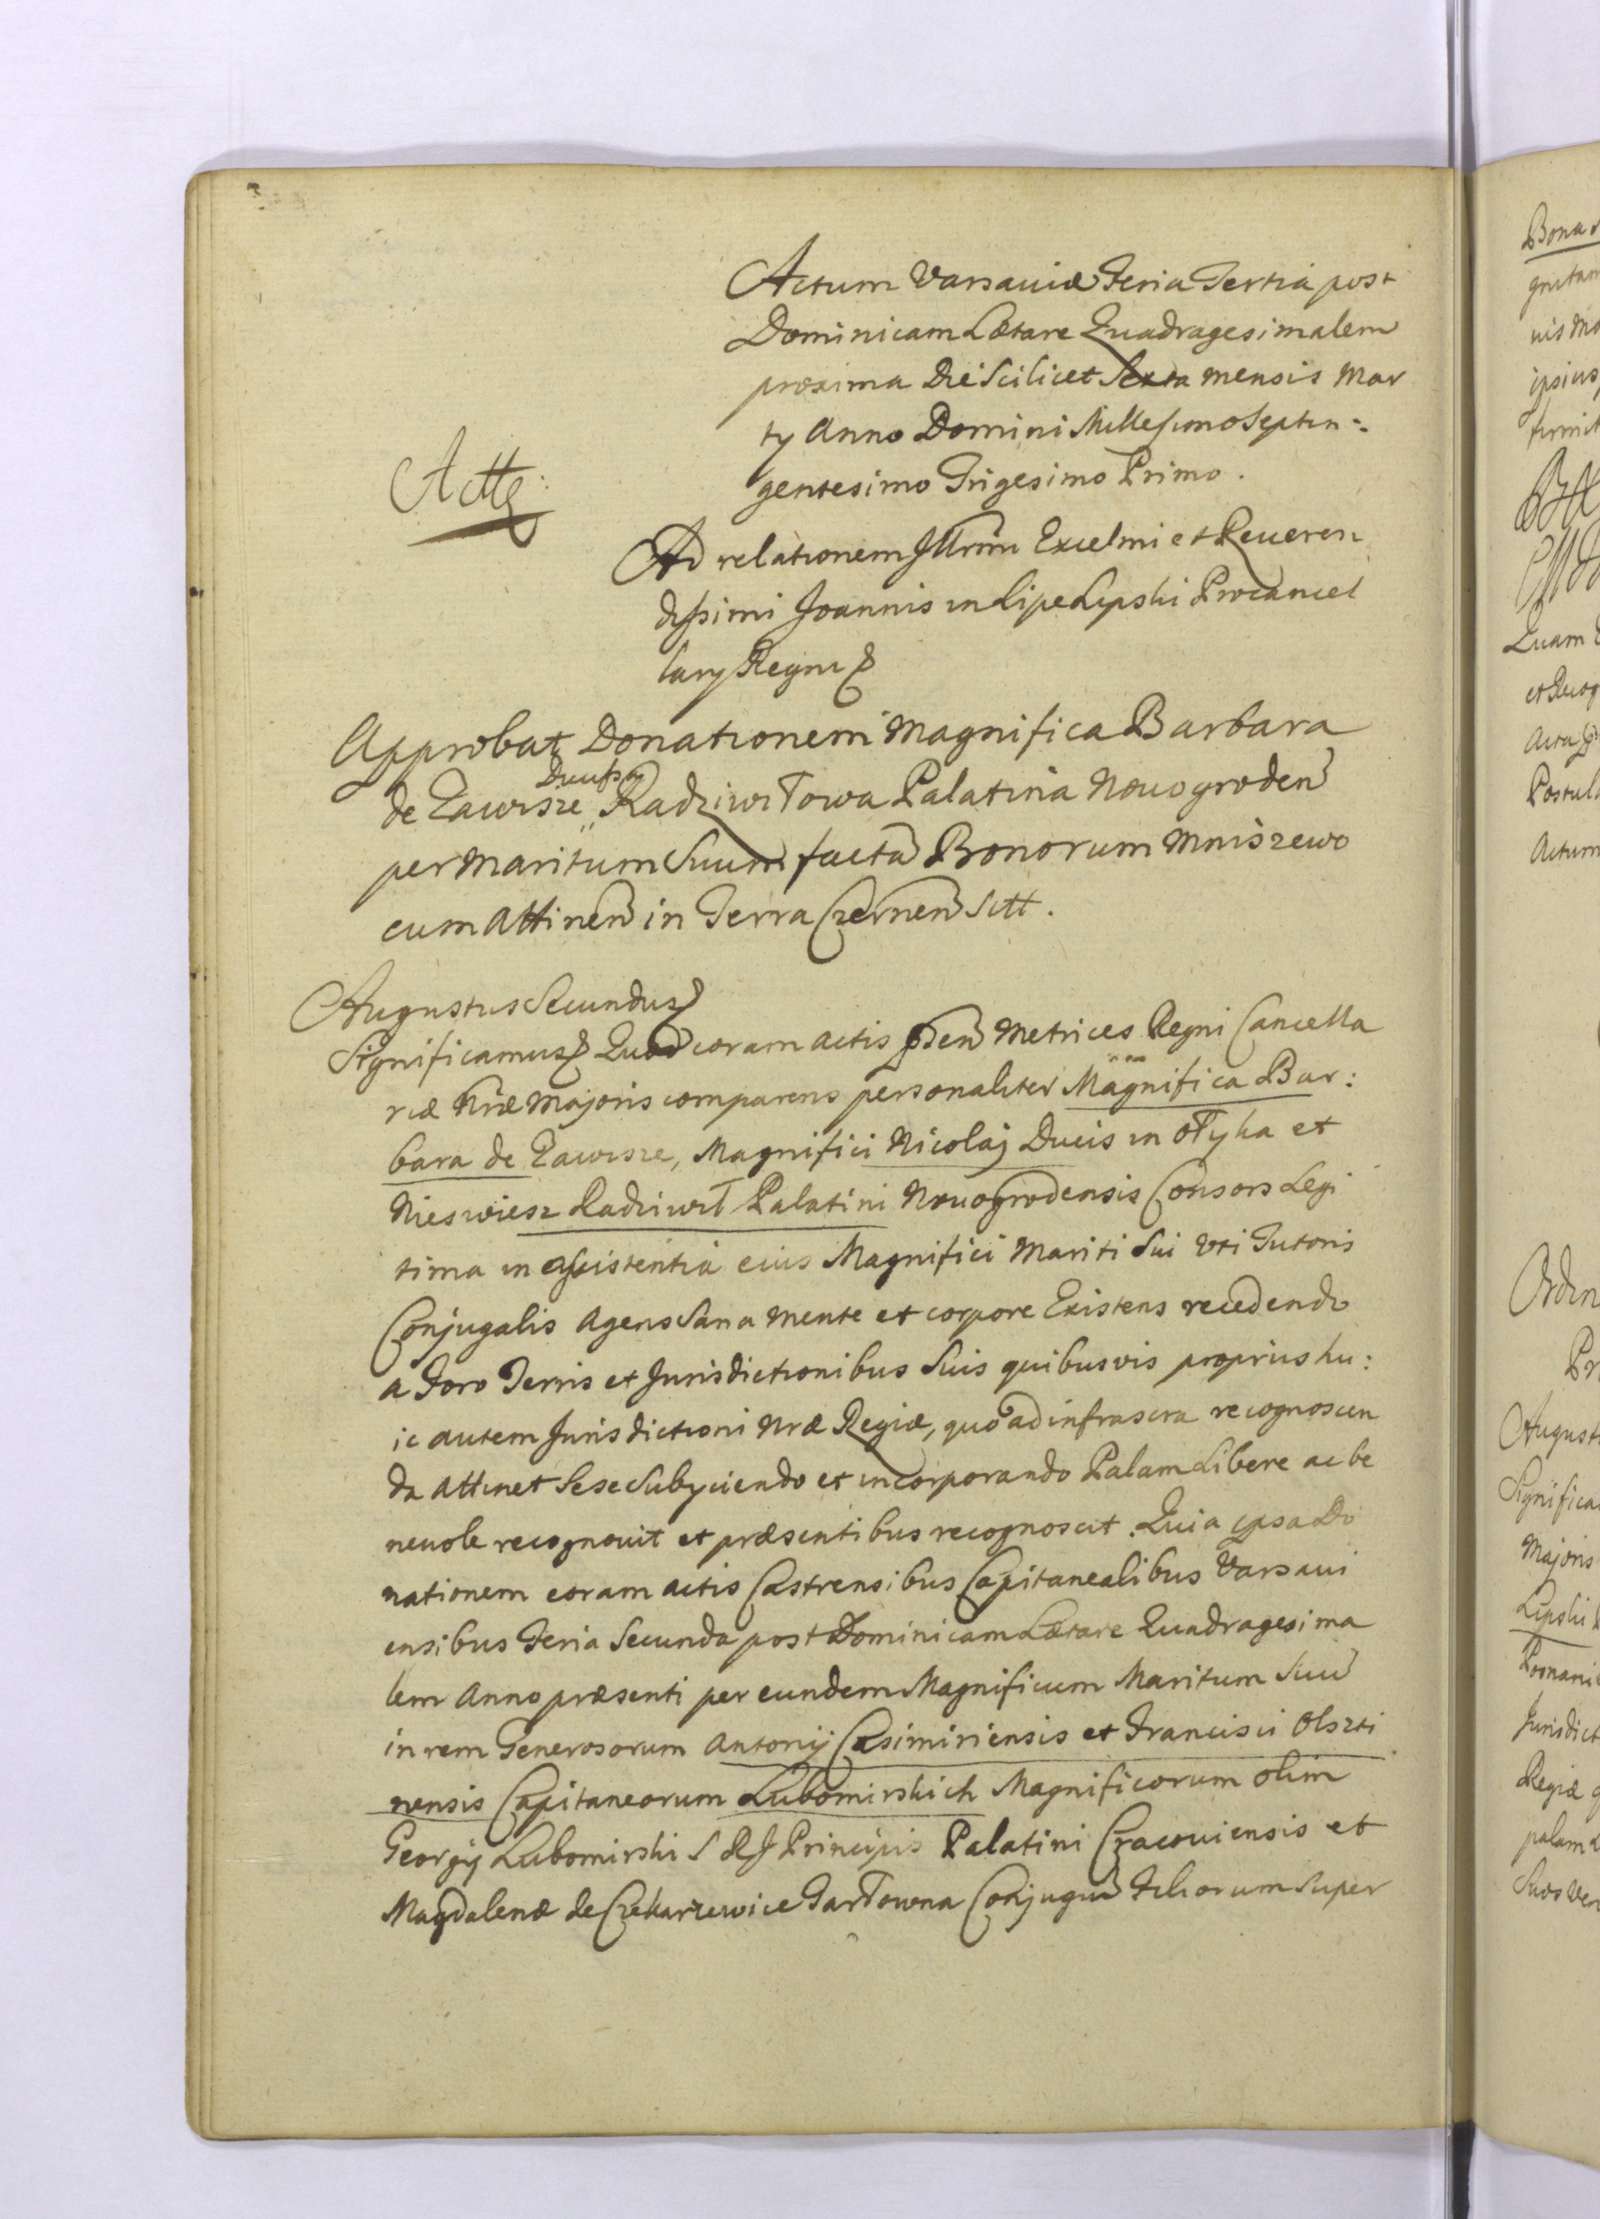 Actum Varsaviæ Feria Tertia post
Dominicam Lætare Quadragesimalem
proxima Die Scilicet Sexta mensis Mar
ty Anno Domini Millesimo Septin=
gentesimo Trigesimo Primo.
Actte:
Ad relationem Illrmi Excelmi et Reueren
dissimi Joannis in Lipe Lipski Procancel
lary Regni
Approbat Donationem Magnifica Barbara
Ducissa
de Zawisze Radziwiłowa Palatina Novogroden
per Maritum Suum facta Bonorum Mniszewo
cum Attinen in Terra Czernen Sitt.
Augustus Secundus
Significamus Quod coram actis præsen Metrices Regni Cancella
riæ Nræ Majoris comparens personaliter Magnifica Bar:
bara de Zawisze, Magnifici Nicolaj Ducis in Ołyka et
Nieswiesz Radziwił Palatini Novogrodensis Consors Legi
tima in assistentia eius Magnifici Mariti Sui Vti Tutoris
Conjugalis Agens Sana mente et corpore Existens recedendo
a Foro Terris et Jurisdictionibus Suis quibusvis propriis hu:
ic autem Jurisdictioni Nræ Regiæ, quo ad infrascra recognoscen
da attinet Sese Subyciendo et incorporando Palam Libere ac be
nevole recognovit et præsentibus recognoscit. Quia ipsa Do
nationem coram actis Castrensibus Capitanealibus Varsavi
ensibus Feria Secunda post Dominicam Lætare Quadragesima
lem Anno præsenti per eundem Magnificum Maritum Suu
in rem Generosorum Antonij Casimiriensis et Francisci Olszti
nensis Capitaneorum Lubomirskich Magnificorum olim
Georgij Lubomirski S R J Principis Palatini Cracoviensis et
Magdalenæ de Czekarzewice Tarłowna Conjugum Filiorum Super